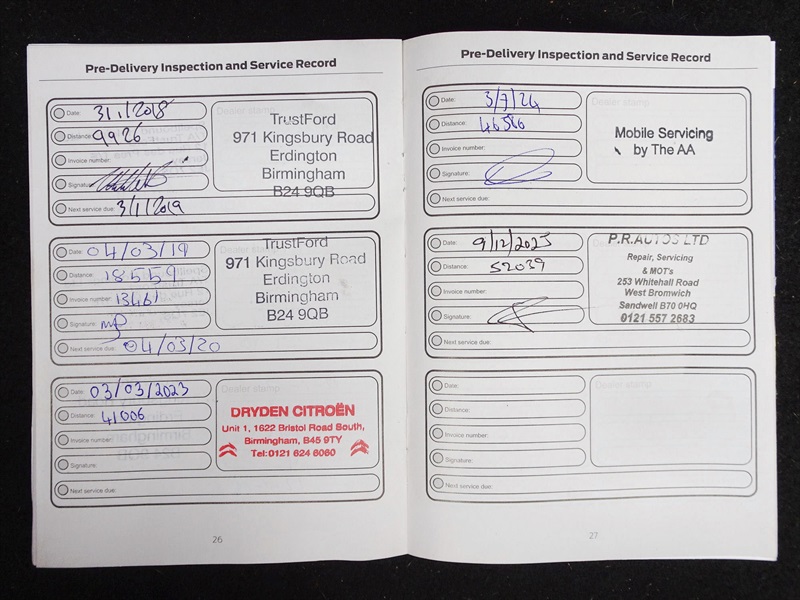 Pre-Delivery Inspection and Service Record
Date: 3/1/2018
Distance: 9926
Invoice number:
Signature:
Next service due: 3/1/2019
Dealer stamp
TrustFord
971 Kingsbury Road
Erdington
Birmingham
B24 9QB
Date: 04/03/19
Distance: 18559
Invoice number: 13461
Signature:
Next service due: 04/03/20
Dealer stamp
TrustFord
971 Kingsbury Road
Erdington
Birmingham
B24 9QB
Date: 03/03/2023
Distance: 41006
Invoice number:
Signature:
Next service due:
Dealer stamp
DRYDEN CITROËN
Unit 1, 1622 Bristol Road South,
Birmingham, B45 9TY
Tel:0121 624 6060
26
Pre-Delivery Inspection and Service Record
Date: 3/7/24
Distance: 46586
Invoice number:
Signature:
Next service due:
Dealer stamp
Mobile Servicing
by The AA
Date: 9/12/2025
Distance: 52039
Invoice number:
Signature:
Next service due:
P.R.AUTOS LTD
Repair, Servicing
& MOT's
253 Whitehall Road
West Bromwich
Sandwell B70 0HQ
0121 557 2683
Date:
Distance:
Invoice number:
Signature:
Next service due:
Dealer stamp
27